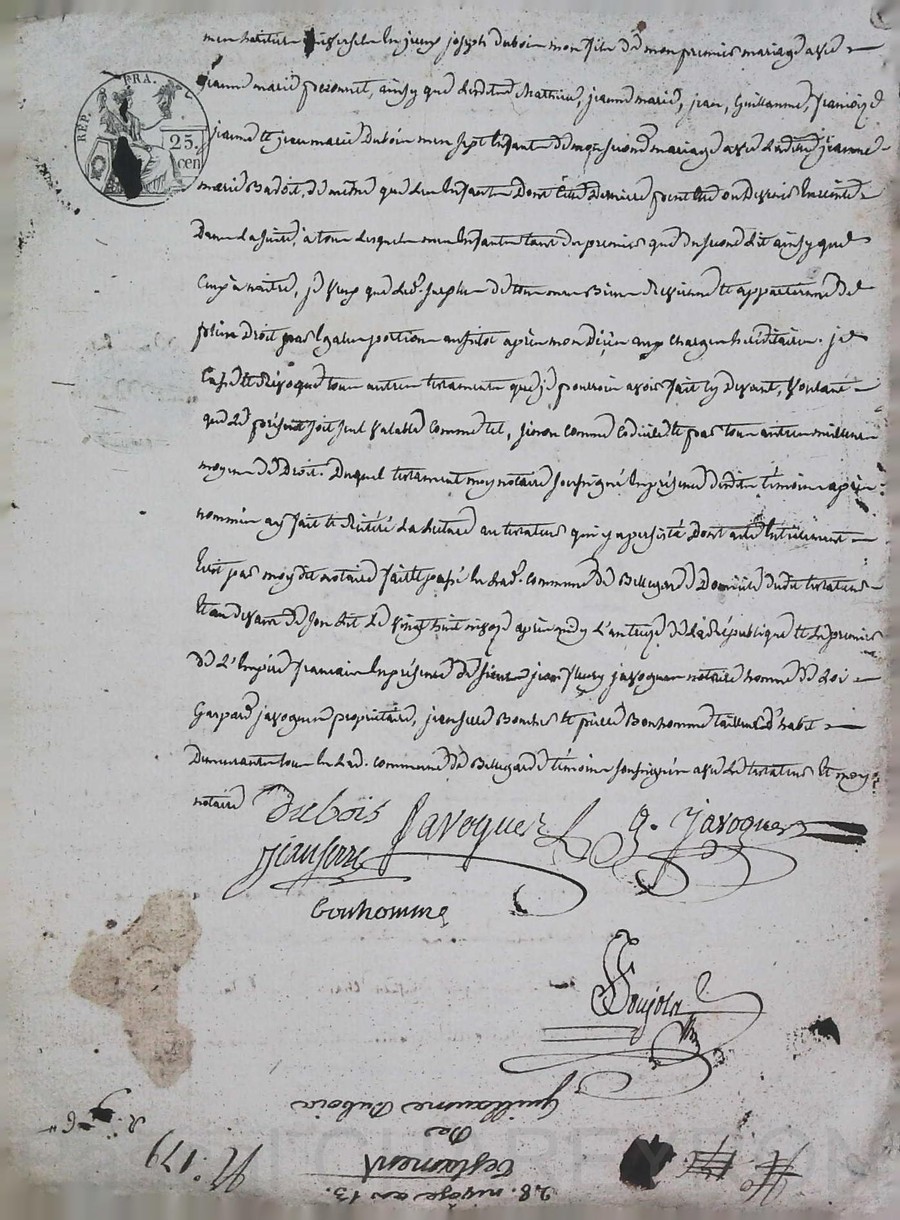 REP. FRA.
25. cen
joseph dubois mon fils de mon premier mariage avec
jeanne marie ainsy que lesdits Mathieu, jeanne marie, jean, Guillaume, françoise
jeanne et jean marie Dubois mes sept Enfants de mon second mariage avec Ladite jeanne
marie Badoit, de même que les Enfants Dont cette Derniere enceinte
Dans la suite, à tous lesquels mes Enfants tant du premier que du second lit ainsy que
ceux à naitre, je veux que led. surplus de tous mes Biens et appartienne de
plein Droit par Egales portions aussitot après mon décès aux charges héréditaires. je
Casse et Révoque tous autres testaments que je pourrois avoir fait cy Devant, voulant
que Le présent soit seul valable Comme tel, sinon comme Codicille et par tous autres meilleurs
moyens de Droit. Duquel testament moy notaire soussigné En présence desdits témoins après
nommés ay fait et Réitéré La lecture au testateur qui y a persisté Dont acte
Ecrit par moy dit notaire fait et passé En lad. Commune de Bellegarde Domicile dudit testateur
et au devant de son lit Le vingt huit nivose après midy L'an treize de La République et le premier
de L'Empire français En présence de sieurs jean fleury javogues notaire homme de Loi
Gaspard javogues propriétaire, jean et pierre Bonhomme tailleur d'habit
Demeurants tous En Lad. commune de Bellegarde témoins soussignés avec Le testateur Et moy
notaire
Dubois Javogues G. Javogues
jean
bonhomme
Soujola
28. nivôse an 13.
Testament
De
guillaume Dubois
N°. 179